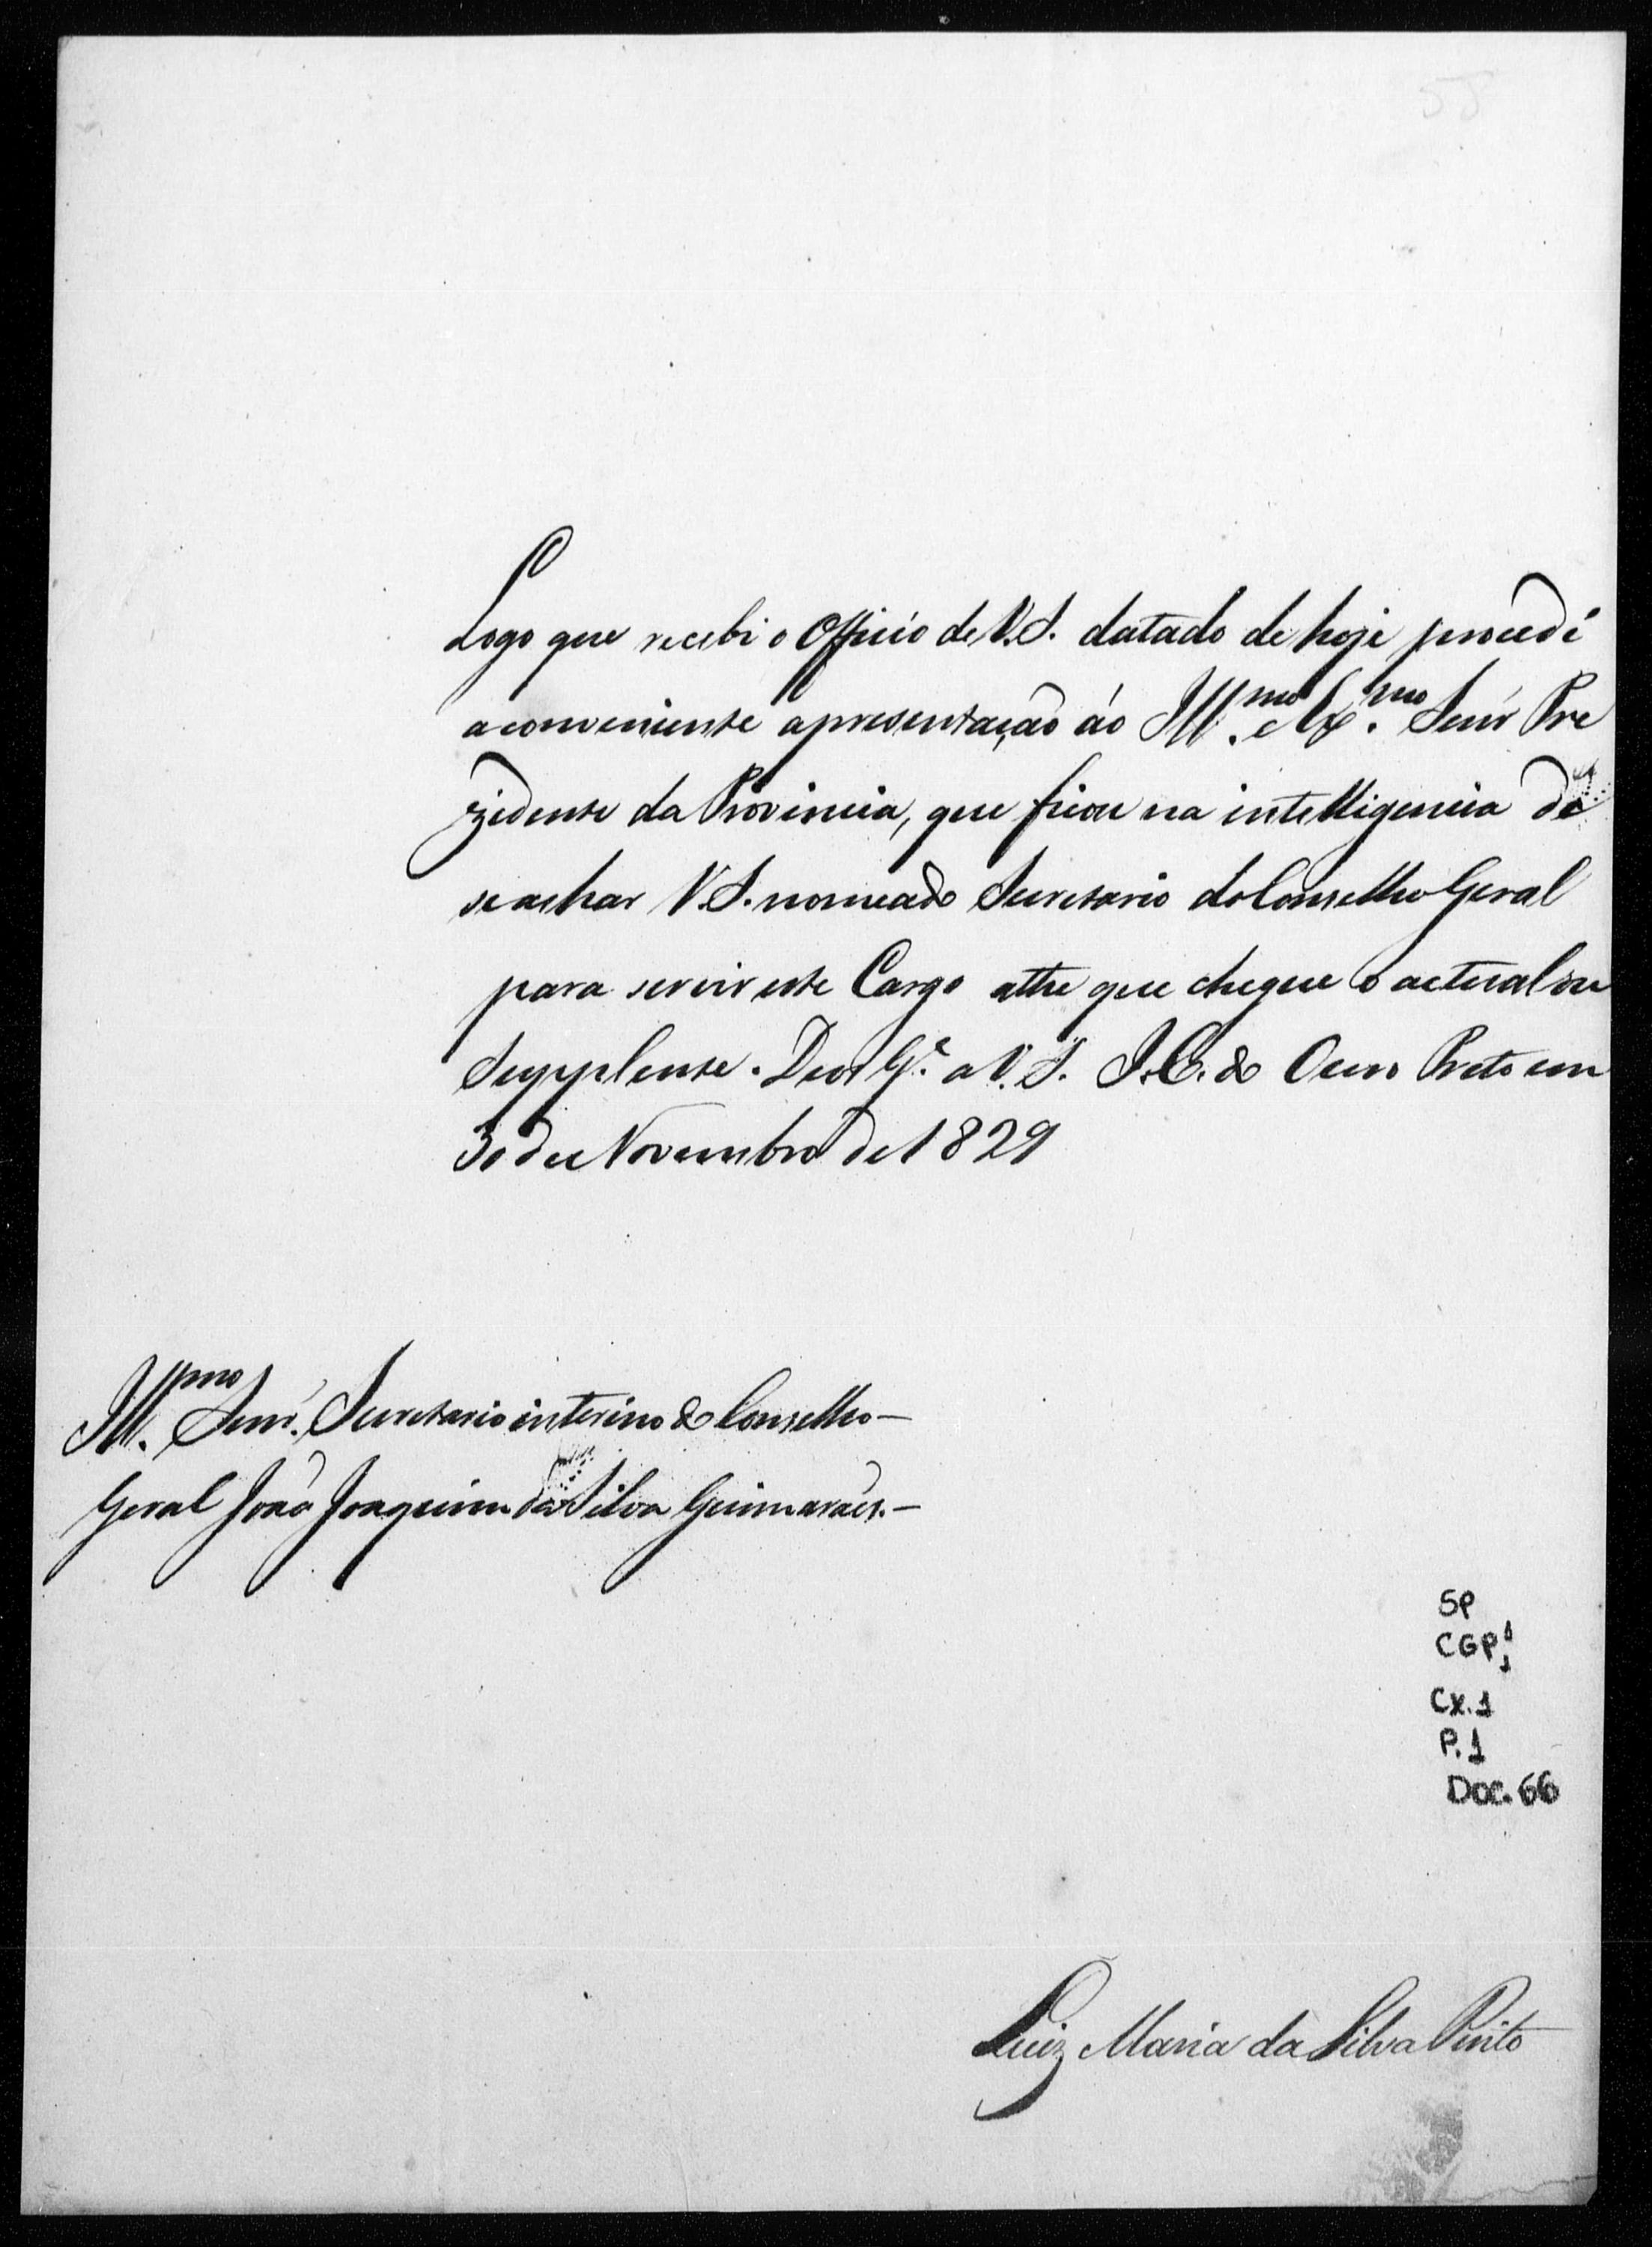 55
Logo que recebi o Officio de V.S. datado de hoje procedi
a conveniente apresentação áo Ill.mo e Ex.mo Senr Pre
zidente da Provincia, que ficou na intelligencia de
se achar V.S. nomeado Secretario do Conselho Geral
para servir este Cargo athe que chegue o actual ou
Supplente. Deos G.e a V.S. I.C. do Ouro Preto em
30 de Novembro de 1829
Ill.mo Senr. Secretario interino do Conselho-
Geral João Joaquim da Silva Guimarães.-
SP
CGP 1
1
Cx.1
P.1
Doc. 66
Luiz Maria da Silva Pinto